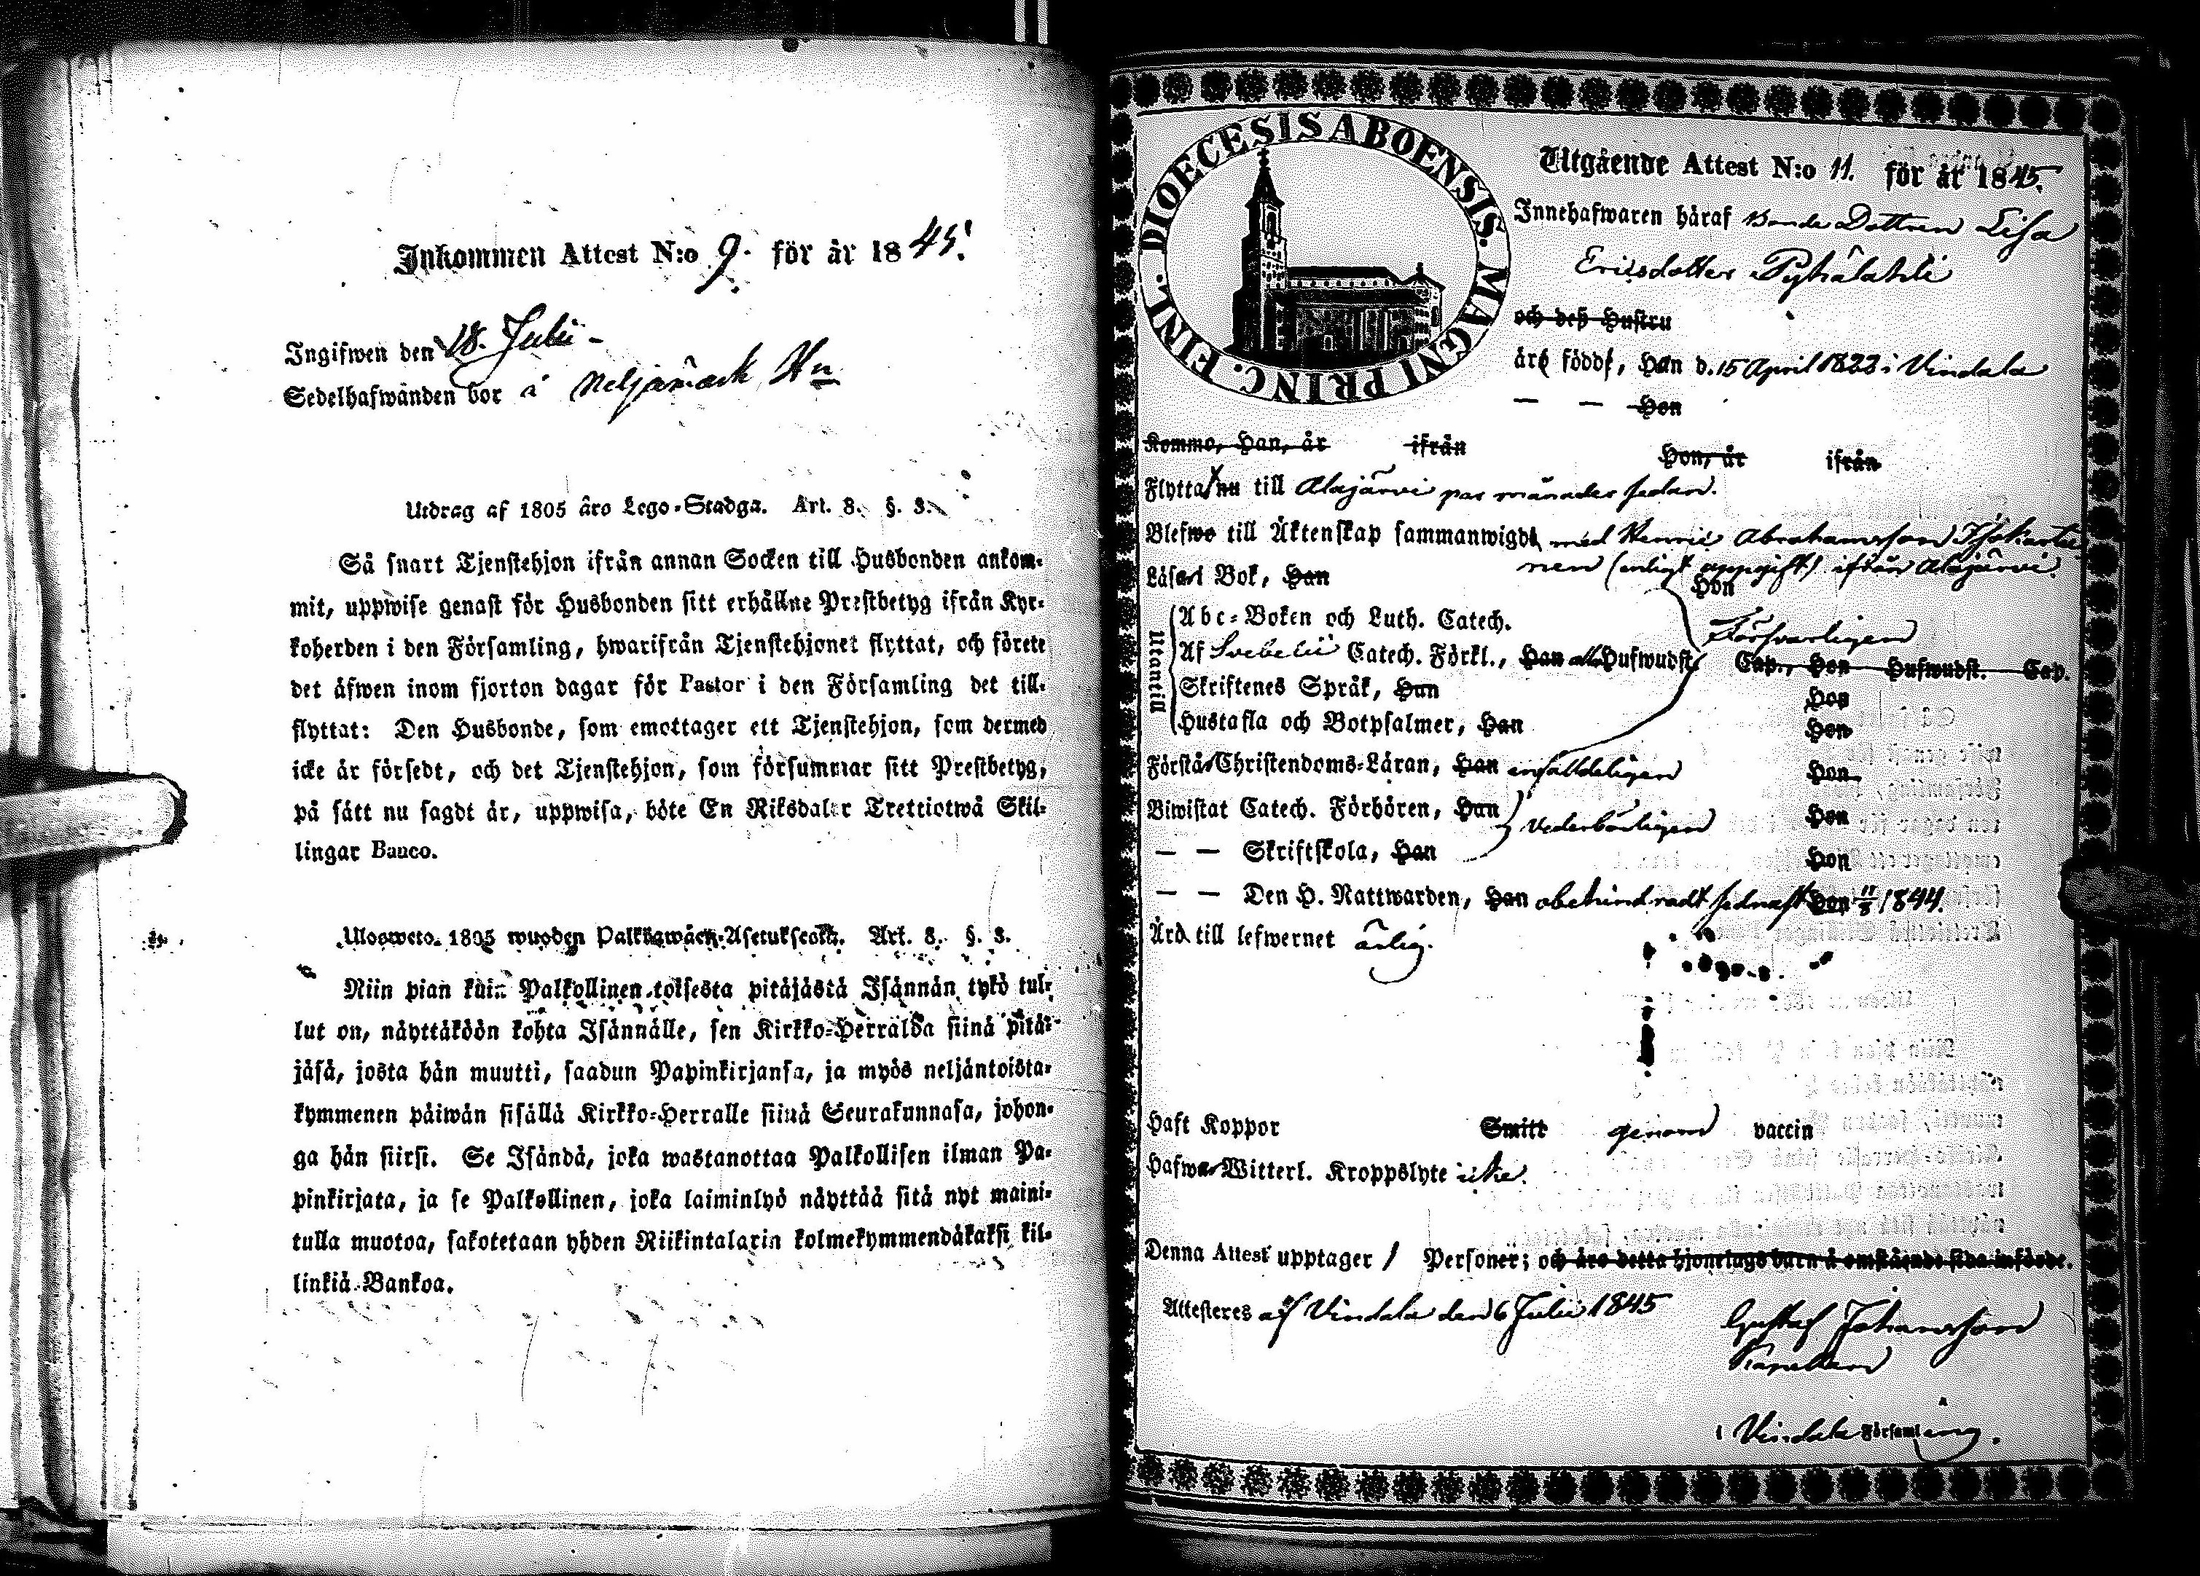 Inkommen Attest N:o 9. för år 1845.
Ingifwen den 18. Julii -
Sedelhafwånden bor å Neljämark Hn
Utdrag af 1805 års Lego-Stadga. Art. 8. §. 3.
Så snart Tjenstehjon ifrån annan Socken till Husbonden ankom-
mit, uppwise genast för Husbonden sitt erhållne Prestbetyg ifrån Kyr-
koherden i den Församling, hwarifrån Tjenstehjonet flyttat, och förete
det åfwen inom fjorton dagar för Pastor i den Församling det till-
flyttat: Den Husbonde, som emottager ett Tjenstehjon, som dermed
icke år försedt, och det Tjenstehjon, som försummar sitt Prestbetyg,
på sått nu sagdt år, uppwisa, böte En Riksdaler Trettiotwå Skil-
lingar Banco.
Ulosweto 1805 wuoden Palkkawäen-Asetuksesta. Art. 8. §. 3.
Niin pian kuin Palkollinen toisesta pitäjästä Isännän tykö tul-
lut on, näyttäköön kohta Isännälle, sen Kirkko-Herralda siinä pitä-
jäsä, josta hän muutti, saadun Papinkirjansa, ja myös neljäntoista-
kymmenen päiwän sisällä Kirkko-Herralle siinä Seurakunnasa, johon-
ga hän siirsi. Se Isändä, joka wastanottaa Palkollisen ilman Pa-
pinkirjata, ja se Palkollinen, joka laiminlyö näyttää sitä nyt maini-
tulla muotoa, sakotetaan yhden Riikintalarin kolmekymmendäkaksi kil-
linkiä Bankoa.
DIOECESIS ABOENSIS. MAGNI PRINC. FINL.
Utgående Attest N:o 11. för år 1845.
Innehafwaren håraf Bonde Dottren Lisa
Ericsdotter Pyhälahti
och deß Hustru
äro födde, Han d. 15 April 1822 i Vindala
— — Hon
Komme, Han, år ifrån Hon, år ifrån
Flytta nu till Alajärvi par månader sedan.
Blefwo till Äktenskap sammanwigde med Henric Abrahamsson
nen (enligt uppgift) ifrån Alajärvi.
Läsa i Bok, Han Hon
Utantill
Abc-Boken och Luth. Catech. Försvarligen
Af Svebelii Catech. Förkl., Han alla Hufwudst. Cap., Hon Hufwudst. Cap.
Skriftenes Språk, Han Hon
Hustafla och Botpsalmer, Han Hon
Förstå Christendoms-Läran, Han enfaldeligen Hon
Biwistat Catech. Förhören, Han vederbörligen Hon
— — Skriftskola, Han Hon
— — Den H. Nattwarden, Han obehindradt sednast Hon 11/8 1844.
Äro till lefwernet ärlig.
Haft Koppor Smitt genom vaccin
Hafwa Witterl. Kroppslyte icke.
Denna Attest upptager 1 Personer; och äro detta hjonelags barn å omstående sida införde.
Attesteres af Vindala den 6 Julii 1845
Gustaf Johansson
Kapellan
i Vindala Församling.